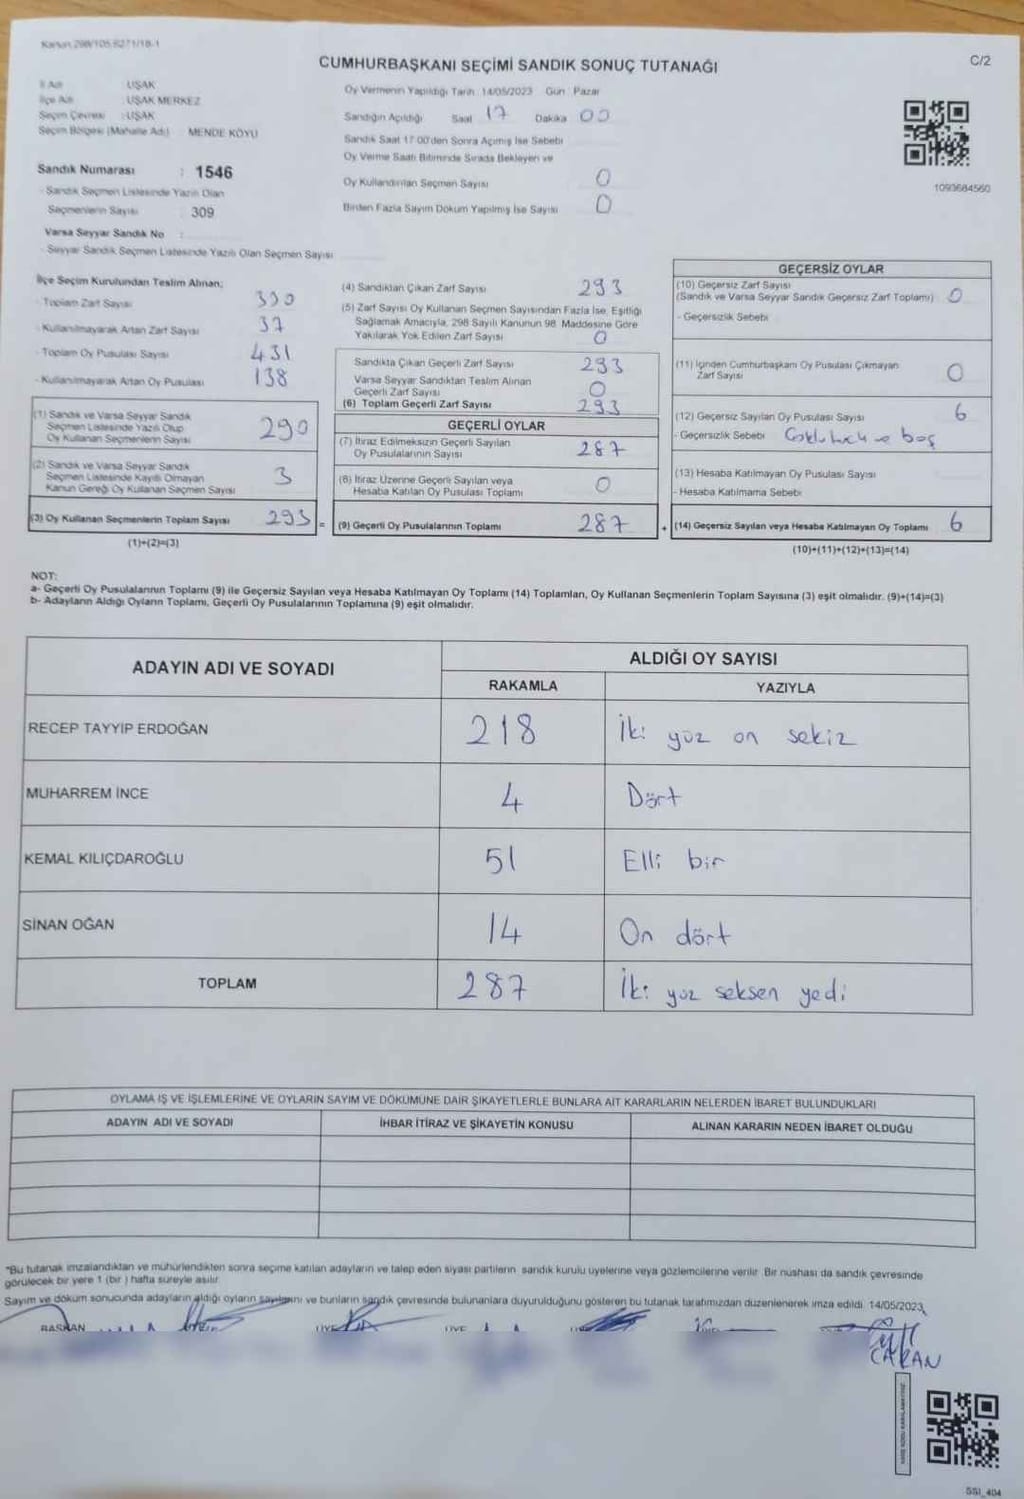 Kanun 298/105 6271/18-1
C/2
CUMHURBAŞKANI SEÇİMİ SANDIK SONUÇ TUTANAĞI
İl Adı : UŞAK
İlçe Adı : UŞAK MERKEZ
Seçim Çevresi : UŞAK
Seçim Bölgesi (Mahalle Adı) : MENDE KÖYÜ
Sandık Numarası : 1546
- Sandık Seçmen Listesinde Yazılı Olan
Seçmenlerin Sayısı : 309
Varsa Seyyar Sandık No :
- Seyyar Sandık Seçmen Listesinde Yazılı Olan Seçmen Sayısı
Oy Vermenin Yapıldığı Tarih : 14/05/2023 Gün : Pazar
Sandığın Açıldığı Saat 17 Dakika 00
Sandık Saat 17:00'den Sonra Açılmış İse Sebebi
Oy Verme Saati Bitiminde Sırada Bekleyen ve
Oy Kullandırılan Seçmen Sayısı 0
Birden Fazla Sayım Döküm Yapılmış İse Sayısı 0
1093684560
İlçe Seçim Kurulundan Teslim Alınan;
- Toplam Zarf Sayısı 330
- Kullanılmayarak Artan Zarf Sayısı 37
- Toplam Oy Pusulası Sayısı 431
- Kullanılmayarak Artan Oy Pusulası 138
(1) Sandık ve Varsa Seyyar Sandık
Seçmen Listesinde Yazılı Olup
Oy Kullanan Seçmenlerin Sayısı 290
(2) Sandık ve Varsa Seyyar Sandık
Seçmen Listesinde Kayıtlı Olmayan
Kanun Gereği Oy Kullanan Seçmen Sayısı 3
(3) Oy Kullanan Seçmenlerin Toplam Sayısı 293 =
(1)+(2)=(3)
(4) Sandıktan Çıkan Zarf Sayısı 293
(5) Zarf Sayısı Oy Kullanan Seçmen Sayısından Fazla İse, Eşitliği
Sağlamak Amacıyla, 298 Sayılı Kanunun 98. Maddesine Göre
Yakılarak Yok Edilen Zarf Sayısı 0
Sandıkta Çıkan Geçerli Zarf Sayısı 293
Varsa Seyyar Sandıktan Teslim Alınan
Geçerli Zarf Sayısı 0
(6) Toplam Geçerli Zarf Sayısı 293
GEÇERLİ OYLAR
(7) İtiraz Edilmeksizin Geçerli Sayılan
Oy Pusulalarının Sayısı 287
(8) İtiraz Üzerine Geçerli Sayılan veya
Hesaba Katılan Oy Pusulası Toplamı 0
(9) Geçerli Oy Pusulalarının Toplamı 287 +
GEÇERSİZ OYLAR
(10) Geçersiz Zarf Sayısı
(Sandık ve Varsa Seyyar Sandık Geçersiz Zarf Toplamı) 0
- Geçersizlik Sebebi
(11) İçinden Cumhurbaşkanı Oy Pusulası Çıkmayan
Zarf Sayısı 0
(12) Geçersiz Sayılan Oy Pusulası Sayısı 6
- Geçersizlik Sebebi ve boş
(13) Hesaba Katılmayan Oy Pusulası Sayısı
- Hesaba Katılmama Sebebi
(14) Geçersiz Sayılan veya Hesaba Katılmayan Oy Toplamı 6
(10)+(11)+(12)+(13)=(14)
NOT:
a- Geçerli Oy Pusulalarının Toplamı (9) ile Geçersiz Sayılan veya Hesaba Katılmayan Oy Toplamı (14) Toplamları, Oy Kullanan Seçmenlerin Toplam Sayısına (3) eşit olmalıdır. (9)+(14)=(3)
b- Adayların Aldığı Oyların Toplamı, Geçerli Oy Pusulalarının Toplamına (9) eşit olmalıdır.
ADAYIN ADI VE SOYADI
ALDIĞI OY SAYISI
RAKAMLA YAZIYLA
RECEP TAYYİP ERDOĞAN 218 İki yüz on sekiz
MUHARREM İNCE 4 Dört
KEMAL KILIÇDAROĞLU 51 Elli bir
SİNAN OĞAN 14 On dört
TOPLAM 287 İki yüz seksen yedi
OYLAMA İŞ VE İŞLEMLERİNE VE OYLARIN SAYIM VE DÖKÜMÜNE DAİR ŞİKAYETLERLE BUNLARA AİT KARARLARIN NELERDEN İBARET BULUNDUKLARI
ADAYIN ADI VE SOYADI İHBAR İTİRAZ VE ŞİKAYETİN KONUSU ALINAN KARARIN NEDEN İBARET OLDUĞU
*Bu tutanak imzalandıktan ve mühürlendikten sonra seçime katılan adayların ve talep eden siyasi partilerin sandık kurulu üyelerine veya gözlemcilerine verilir. Bir nüshası da sandık çevresinde
görülecek bir yere 1 (bir ) hafta süreyle asılır.
Sayım ve döküm sonucunda adayların aldığı oyların sayılarını ve bunların sandık çevresinde bulunanlara duyurulduğunu gösteren bu tutanak tarafımızdan düzenlenerek imza edildi. 14/05/2023
BAŞKAN ÜYE ÜYE
SSI_404